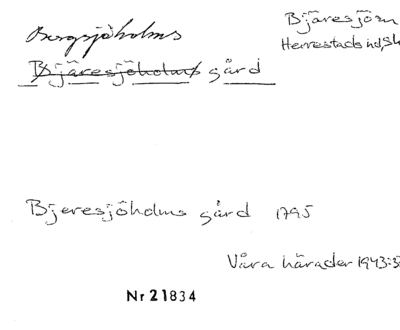 Bergsjöholms
Bjäresjöholms gård
Bjäresjö sn
Herrestads hd, Sk
Bjeresjöholms gård 1795
Våra härader 1943:3
Nr 21834